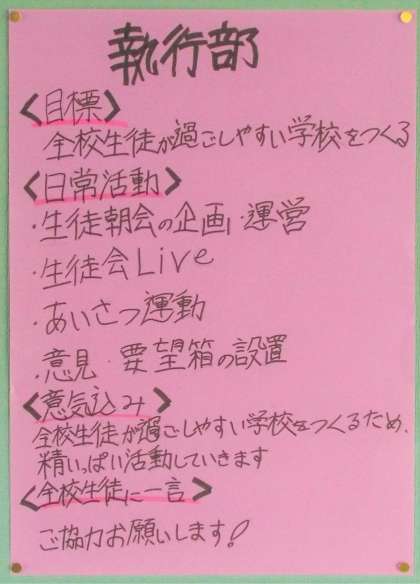 執行部
<目標>
全校生徒が過ごしやすい学校をつくる
<日常活動>
・生徒朝会の企画・運営
・生徒会Live
・あいさつ運動
・意見・要望箱の設置
<意気込み>
全校生徒が過ごしやすい学校をつくるため、
精いっぱい活動していきます
<全校生徒に一言>
ご協力お願いします!